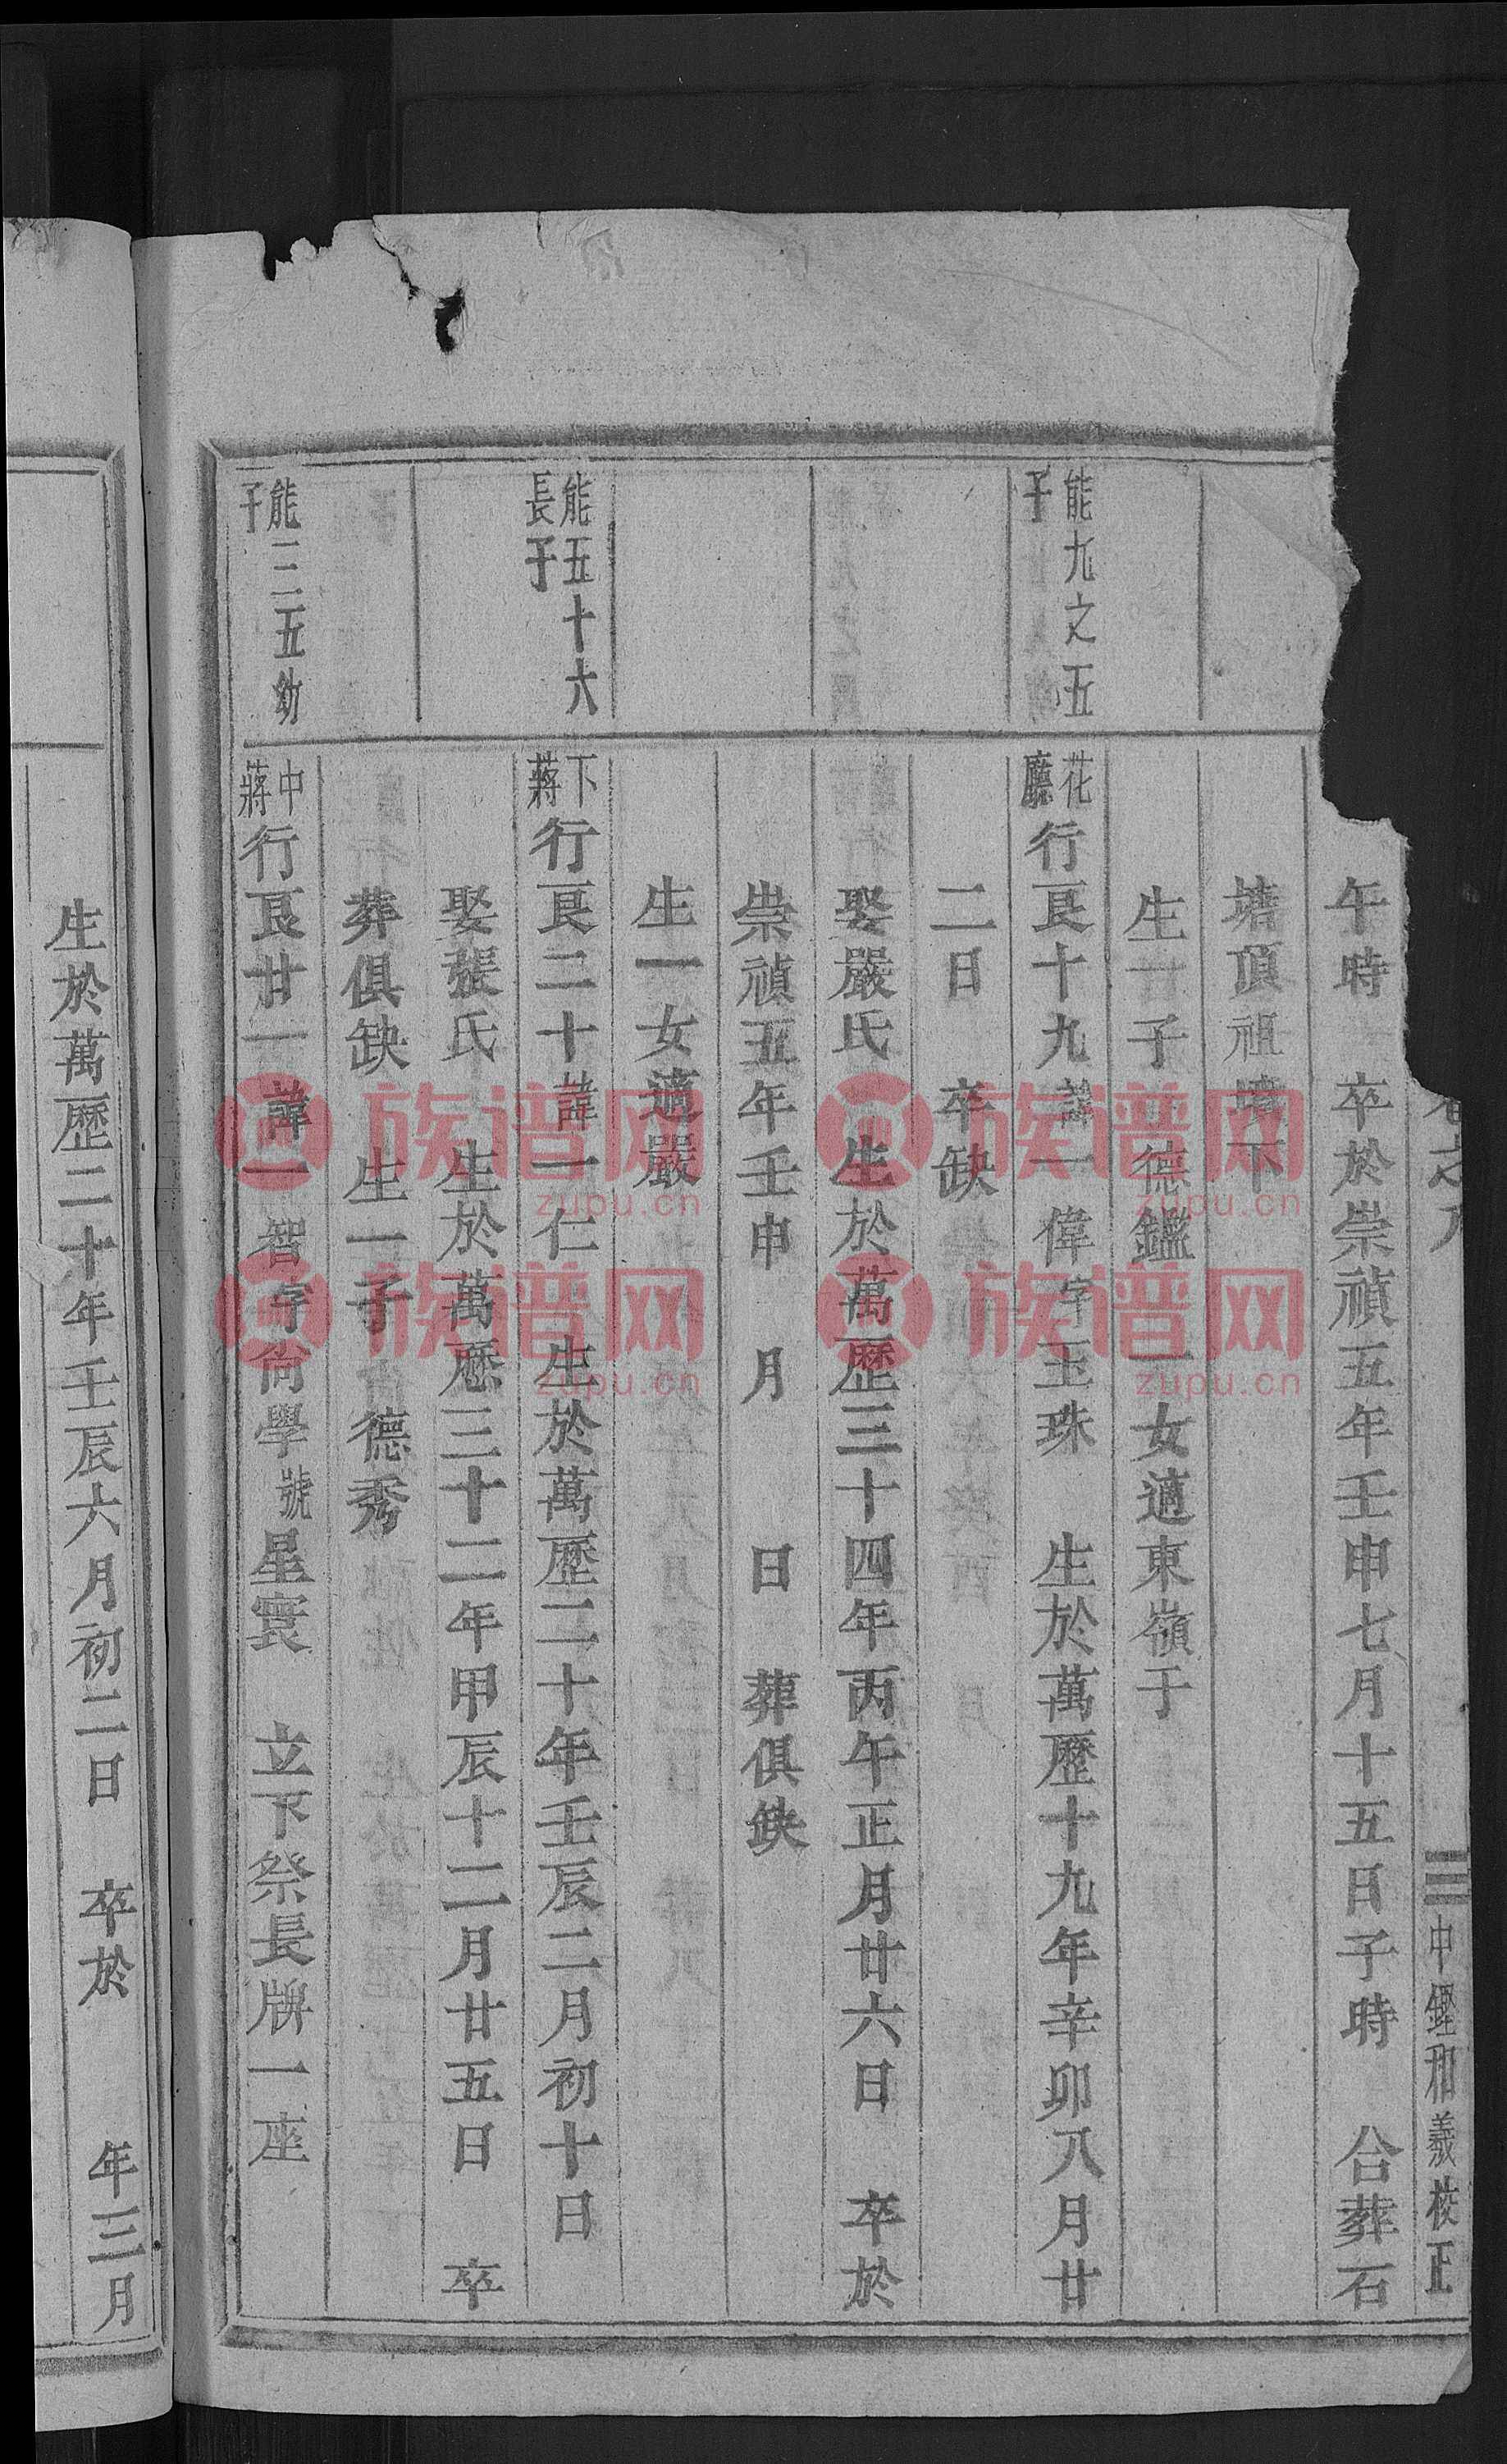 卷之八
中鏗和義校正
午時　卒於崇禎五年壬申七月十五日子時　合葬石
塘頂祖墳下
生一子　德鑑　一女適東嶺于
能九之五子
花廳行艮十九諱一偉字玉珠　生於萬歷十九年辛卯八月廿
二日　卒缺
娶嚴氏　生於萬歷三十四年丙午正月廿六日　卒於
崇禎五年壬申　月　日　葬俱缺
生一女適嚴
能五十六長子
下蔣行艮二十諱一仁　生於萬歷二十年壬辰二月初十日
娶張氏　生於萬歷三十二年甲辰十二月廿五日　卒
葬俱缺　生一子　德秀
能二五幼子
中蔣行艮廿一諱一智字尙學號星寰　立下祭長牌一座
生於萬歷二十年壬辰六月初二日　卒於　年三月
族谱网
zupu.cn
族谱网
zupu.cn
族谱网
zupu.cn
族谱网
zupu.cn